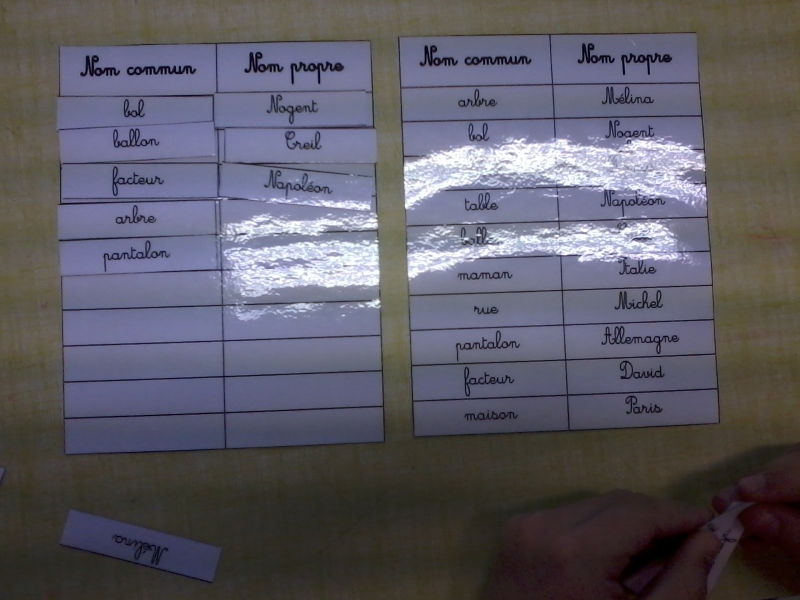 Nom commun Nom propre
bol Nogent
ballon Creil
facteur Napoléon
arbre
pantalon
Nom commun Nom propre
arbre Mélina
bol Nogent
table Napoléon
maman Italie
rue Michel
pantalon Allemagne
facteur David
maison Paris
Mélina